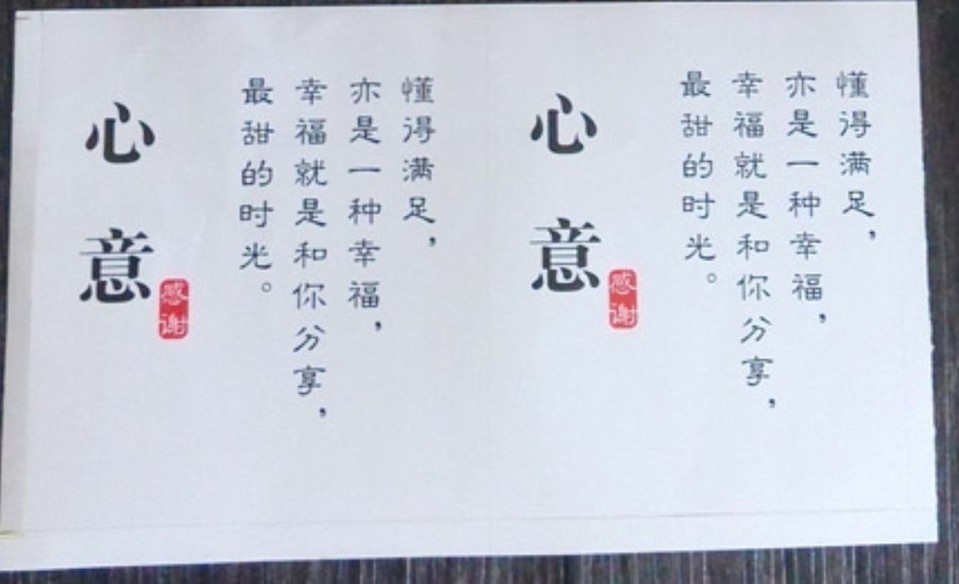 懂得满足，
亦是一种幸福，
幸福就是和你分享，
最甜的时光。
心意
感谢
懂得满足，
亦是一种幸福，
幸福就是和你分享，
最甜的时光。
心意
感谢